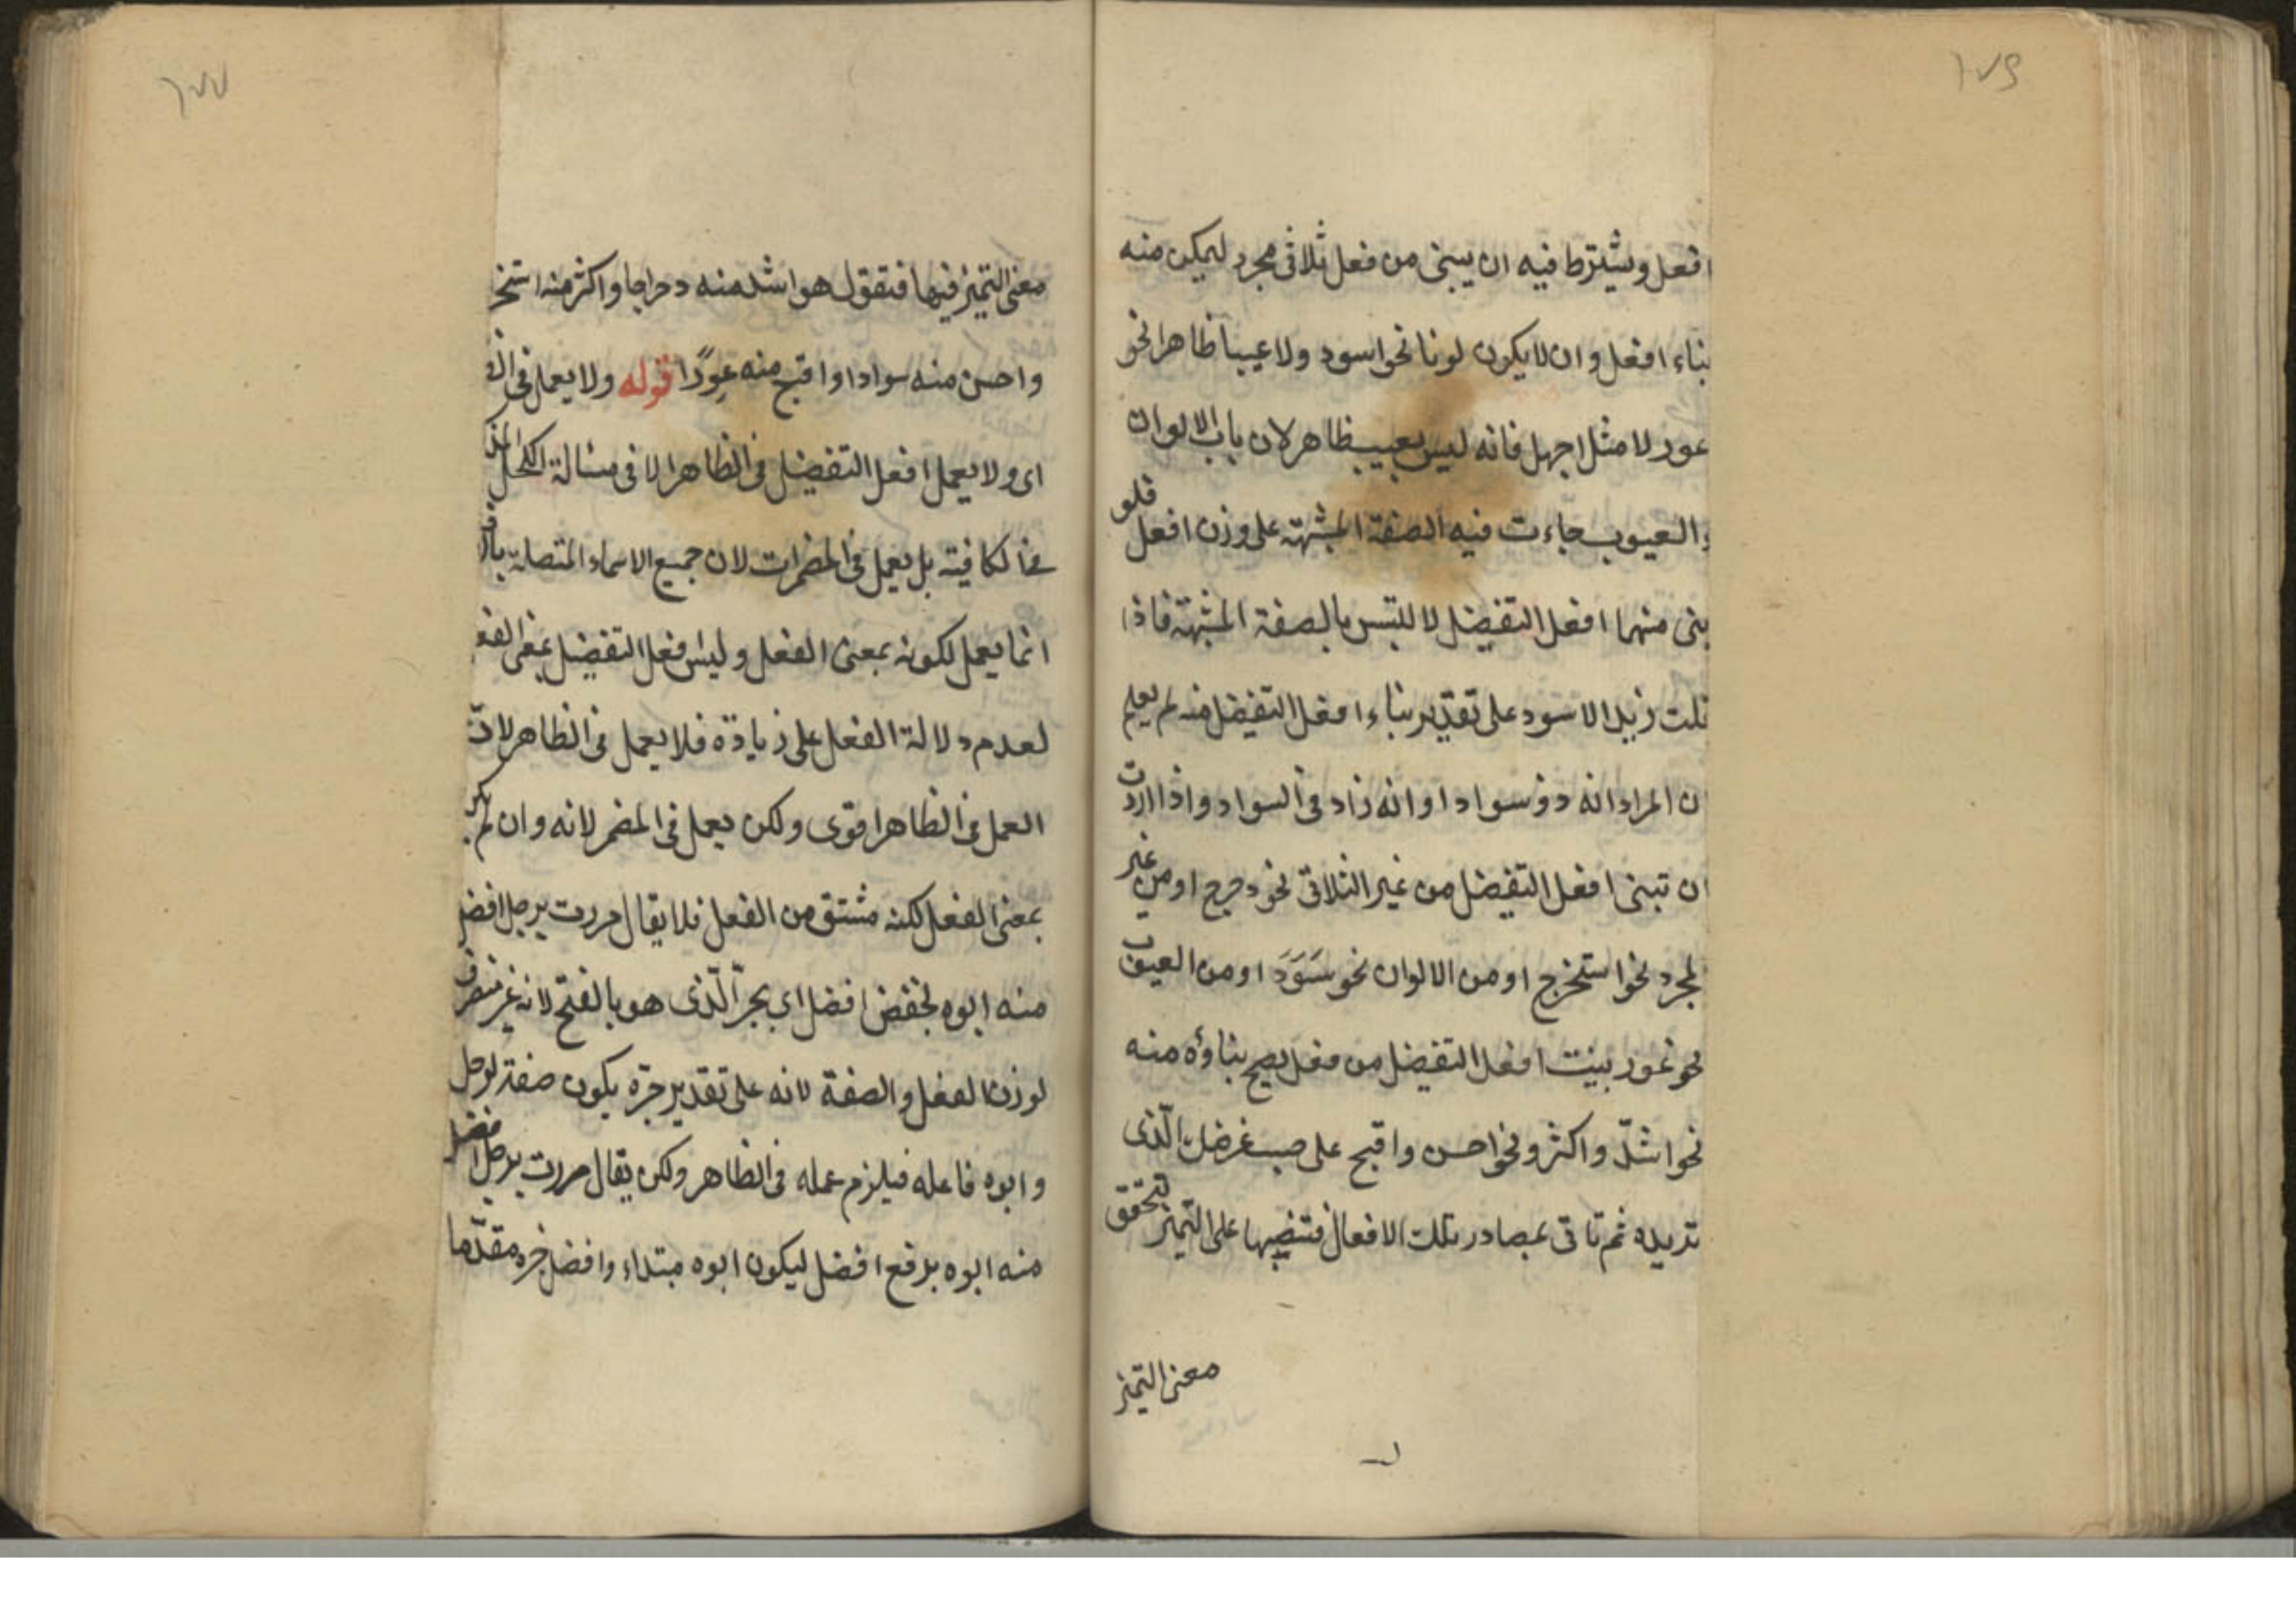 ١٧٦
افعل ويشترط فيه ان يبنى من فعل ثلاثى مجرد ليمكن منه
بناء افعل وان لا يكون لونا نحو اسود ولا عيبا ظاهرا نحو
عور لا مثل اجهل فانه ليس بعيب ظاهر لان باب الالوان
والعيوب جاءت فيه الصفة المشبهة على وزن افعل فلو
بنى منهما افعل التفضيل لالتبس بالصفة المشبهة فاذا
قلت زيد الاسود على تقدير بناء افعل التفضيل منه لم يعلم
ان المراد انه ذو سواد او انه زاد فى السواد واذا اردت
ان تبنى افعل التفضيل من غير الثلاثى نحو دحرج او من غير
المجرد نحو استخرج او من الالوان نحو سَوَدَ او من العيوب
نحو عور بنيت افعل التفضيل من فعل يصح بناؤه منه
نحو اشدّ واكثر ونحو احسن واقبح على حسب غرضك الّذى
تريده ثم تاتى بمصادر تلك الافعال فتنصبها على التميز لتحقق
معنى التميز
١٧٧
معنى التميز فيها فتقول هو اشد منه دحراجا واكثر منه استخر
واحسن منه سوادا واقبح منه عورًا قوله ولا يعمل فى الظ
اى ولا يعمل افعل التفضيل فى الظاهر الا فى مسالة الكحل المذ
فى الكافية بل يعمل فى المضمرات لان جميع الاسماء المتصلة بالف
انما يعمل لكونه بمعنى الفعل وليس افعل التفضيل بمعنى الفع
لعدم دلالة الفعل على زيادة فلا يعمل فى الظاهر لانّ
العمل فى الظاهر اقوى ولكن يعمل فى المضمر لانه وان لم يكن
بمعنى الفعل لكنه مشتق من الفعل فلا يقال مررت برجل افضل
منه ابوه بخفض افضل اى بجرّ الّذى هو بالفتح لانه غير منصرف
لوزن الفعل والصفة لانه على تقدير جرّه يكون صفة لرجل
وابوه فاعله فيلزم عمله فى الظاهر ولكن يقال مررت برجل افضل
منه ابوه برفع افضل ليكون ابوه مبتداء وافضل خبره مقدّما